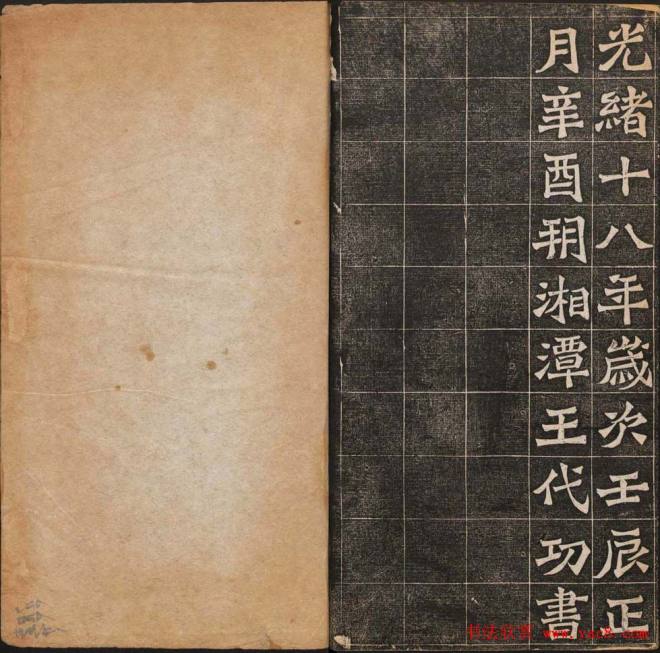 光緒十八年歲次壬辰正
月辛酉朔湘潭王代功書
书法欣赏 www.yac8.com